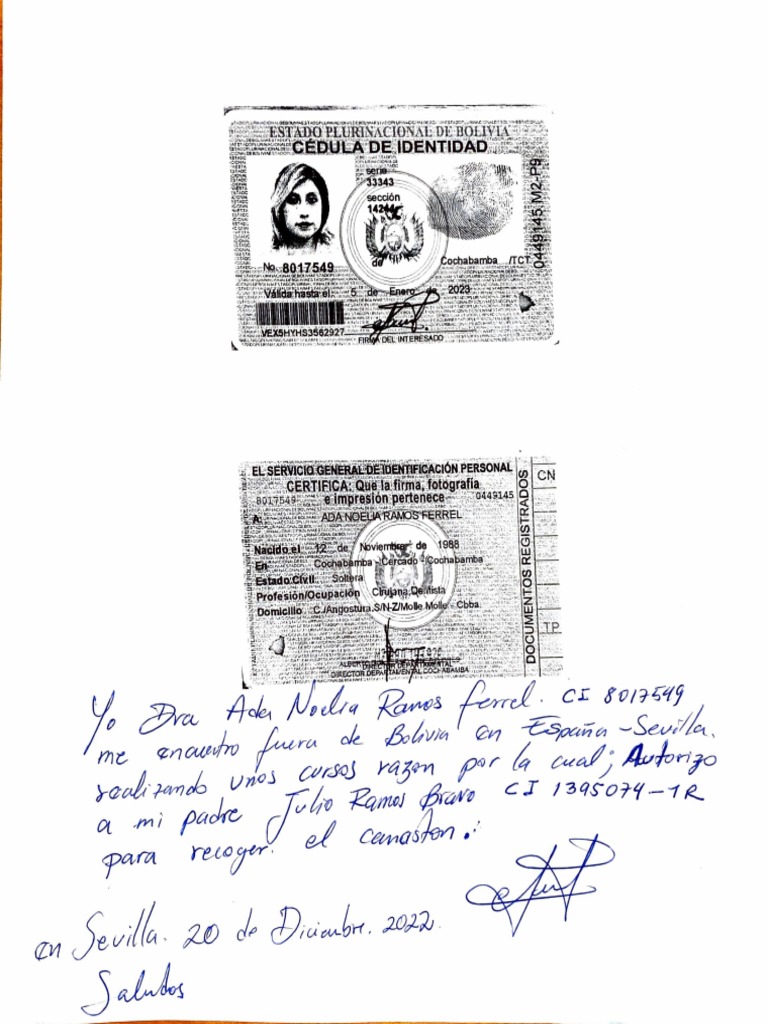 ESTADO PLURINACIONAL DE BOLIVIA
CÉDULA DE IDENTIDAD
serie
33343
sección
0449145 M2-P9
No. 8017549
de Cochabamba /TCT
Válida hasta el 5 de Enero de 2023
VEX5HYHS3562927
FIRMA DEL INTERESADO
EL SERVICIO GENERAL DE IDENTIFICACIÓN PERSONAL
CERTIFICA: Que la firma, fotografía
8017549 e impresión pertenece 0449145
A: ADA NOELIA RAMOS FERREL
Nacido el 12 de Noviembre de 1988
En Cochabamba - Cercado - Cochabamba
Estado Civil Soltera
Profesión/Ocupación Cirujana Dentista
Domicilio C./Angostura S/N-Z/Molle Molle - Cbba.
DOCUMENTOS REGISTRADOS
CN
TP
DIRECTOR DEPARTAMENTAL COCHABAMBA
Yo Dra Ada Noelia Ramos Ferrel. CI 8017549
me encuentro fuera de Bolivia en España - Sevilla.
realizando unos cursos razon por la cual; Autorizo
a mi padre Julio Ramos Bravo CI 1395074-1R
para recoger. el canaston.
en Sevilla. 20 de Diciembre. 2022.
Saludos